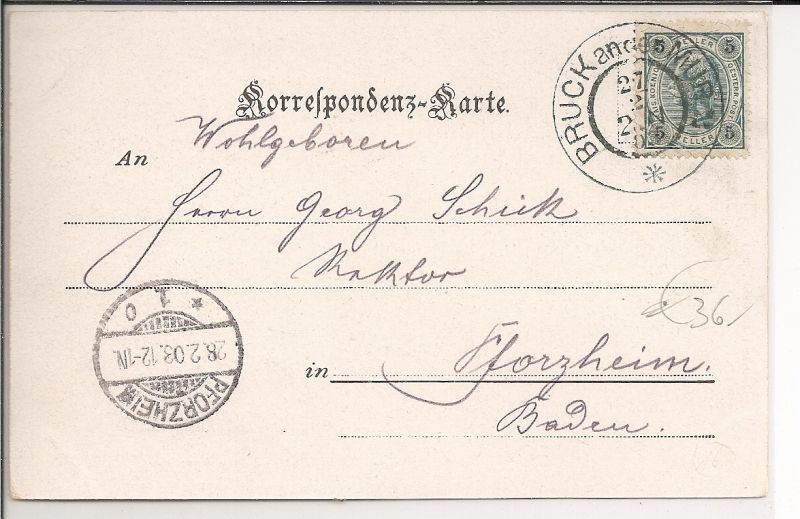 Korrespondenz-Karte.
Wohlgeboren
An
Herrn Georg Schick
Rektor
in Pforzheim.
Baden.
BRUCK an der MUR
27
2
5 HELLER 5
5 HELLER 5
PFORZHEIM
28.2.03.12-1N.
* 1 0
36